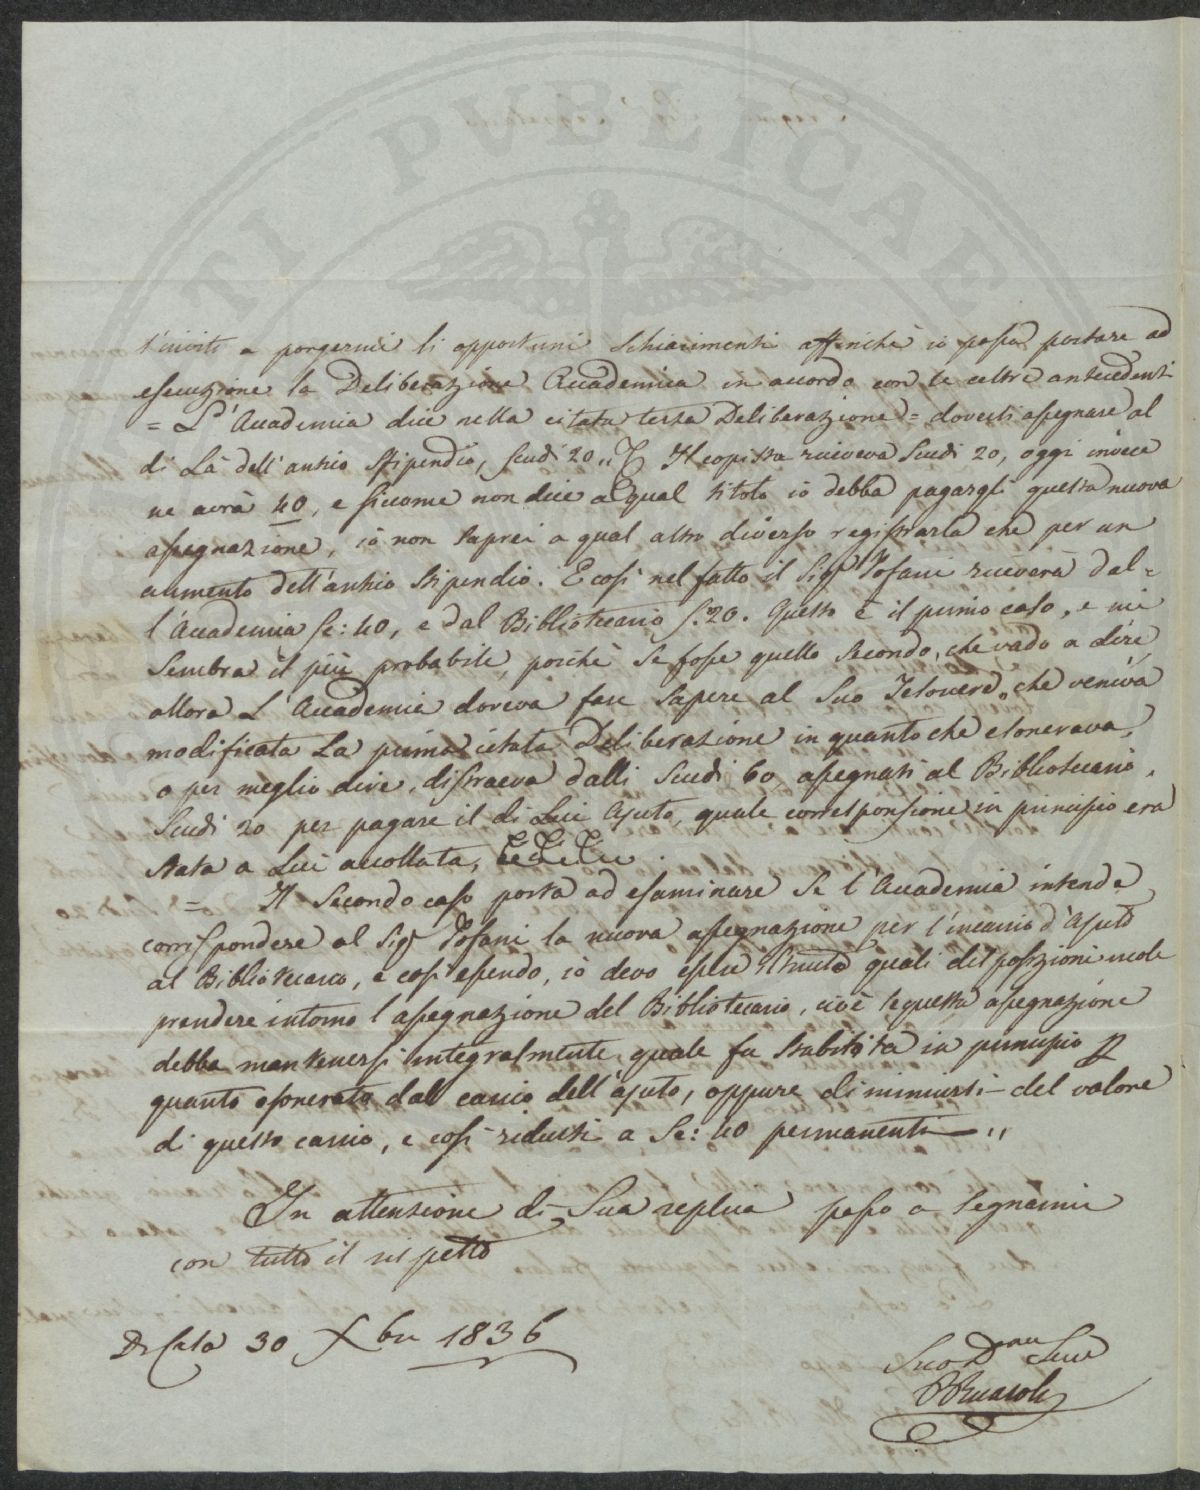 TI PVBLICAE
l'inviti a porgermi li opportuni schiarimenti affinchè io possa portare ad
esecuzione la Deliberazione Accademica in accordo con le altre antecedenti
= L'Accademia dice nella citata terza Deliberazione = doversi assegnare al
di Là dell'antico Stipendio, scudi 20 „ Il copista riceveva Scudi 20, oggi invece
ne avrà 40, e siccome non dice a qual titolo io debba pagargli questa nuova
assegnazione, io non saprei a qual altro diverso registrarla che per un
aumento dell'antico stipendio. E così nel fatto il Sigr Tofani riceverà dal=
l'Accademia Sc: 40, e dal Bibliotecario S. 20. Questo è il primo caso, e mi
sembra il più probabile, poichè se fosse quello secondo, che vado a dire,
allora L'Accademia doveva fare sapere al Suo Tesoriere, che veniva
modificata La prima citata Deliberazione in quanto che esonerava,
o per meglio dire, distraeva dalli Scudi 60 assegnati al Bibliotecario,
Scudi 20 per pagare il di Lui Ajuto, quale corresponsione in principio era
stata a Lui accollata,
= Il Secondo caso porta ad esaminare se l'Accademia intende
corrispondere al Sigr Tofani la nuova assegnazione per l'incarico d'Ajuto
al Bibliotecario, e così essendo, io devo essere istruito quali disposizioni vuole
prendere intorno l'assegnazione del Bibliotecario, cioè se questa assegnazione
debba mantenersi integralmente quale fu stabilita in principio
quanto esonerato dal carico dell'ajuto, oppure diminuirsi del valore
di questo carico, e così ridursi a Sc: 40 permanenti „
In attenzione di Sua replica passo a segnarmi
con tutto il rispetto
Di Casa 30 Xbre 1836
Suo
BRicasoli